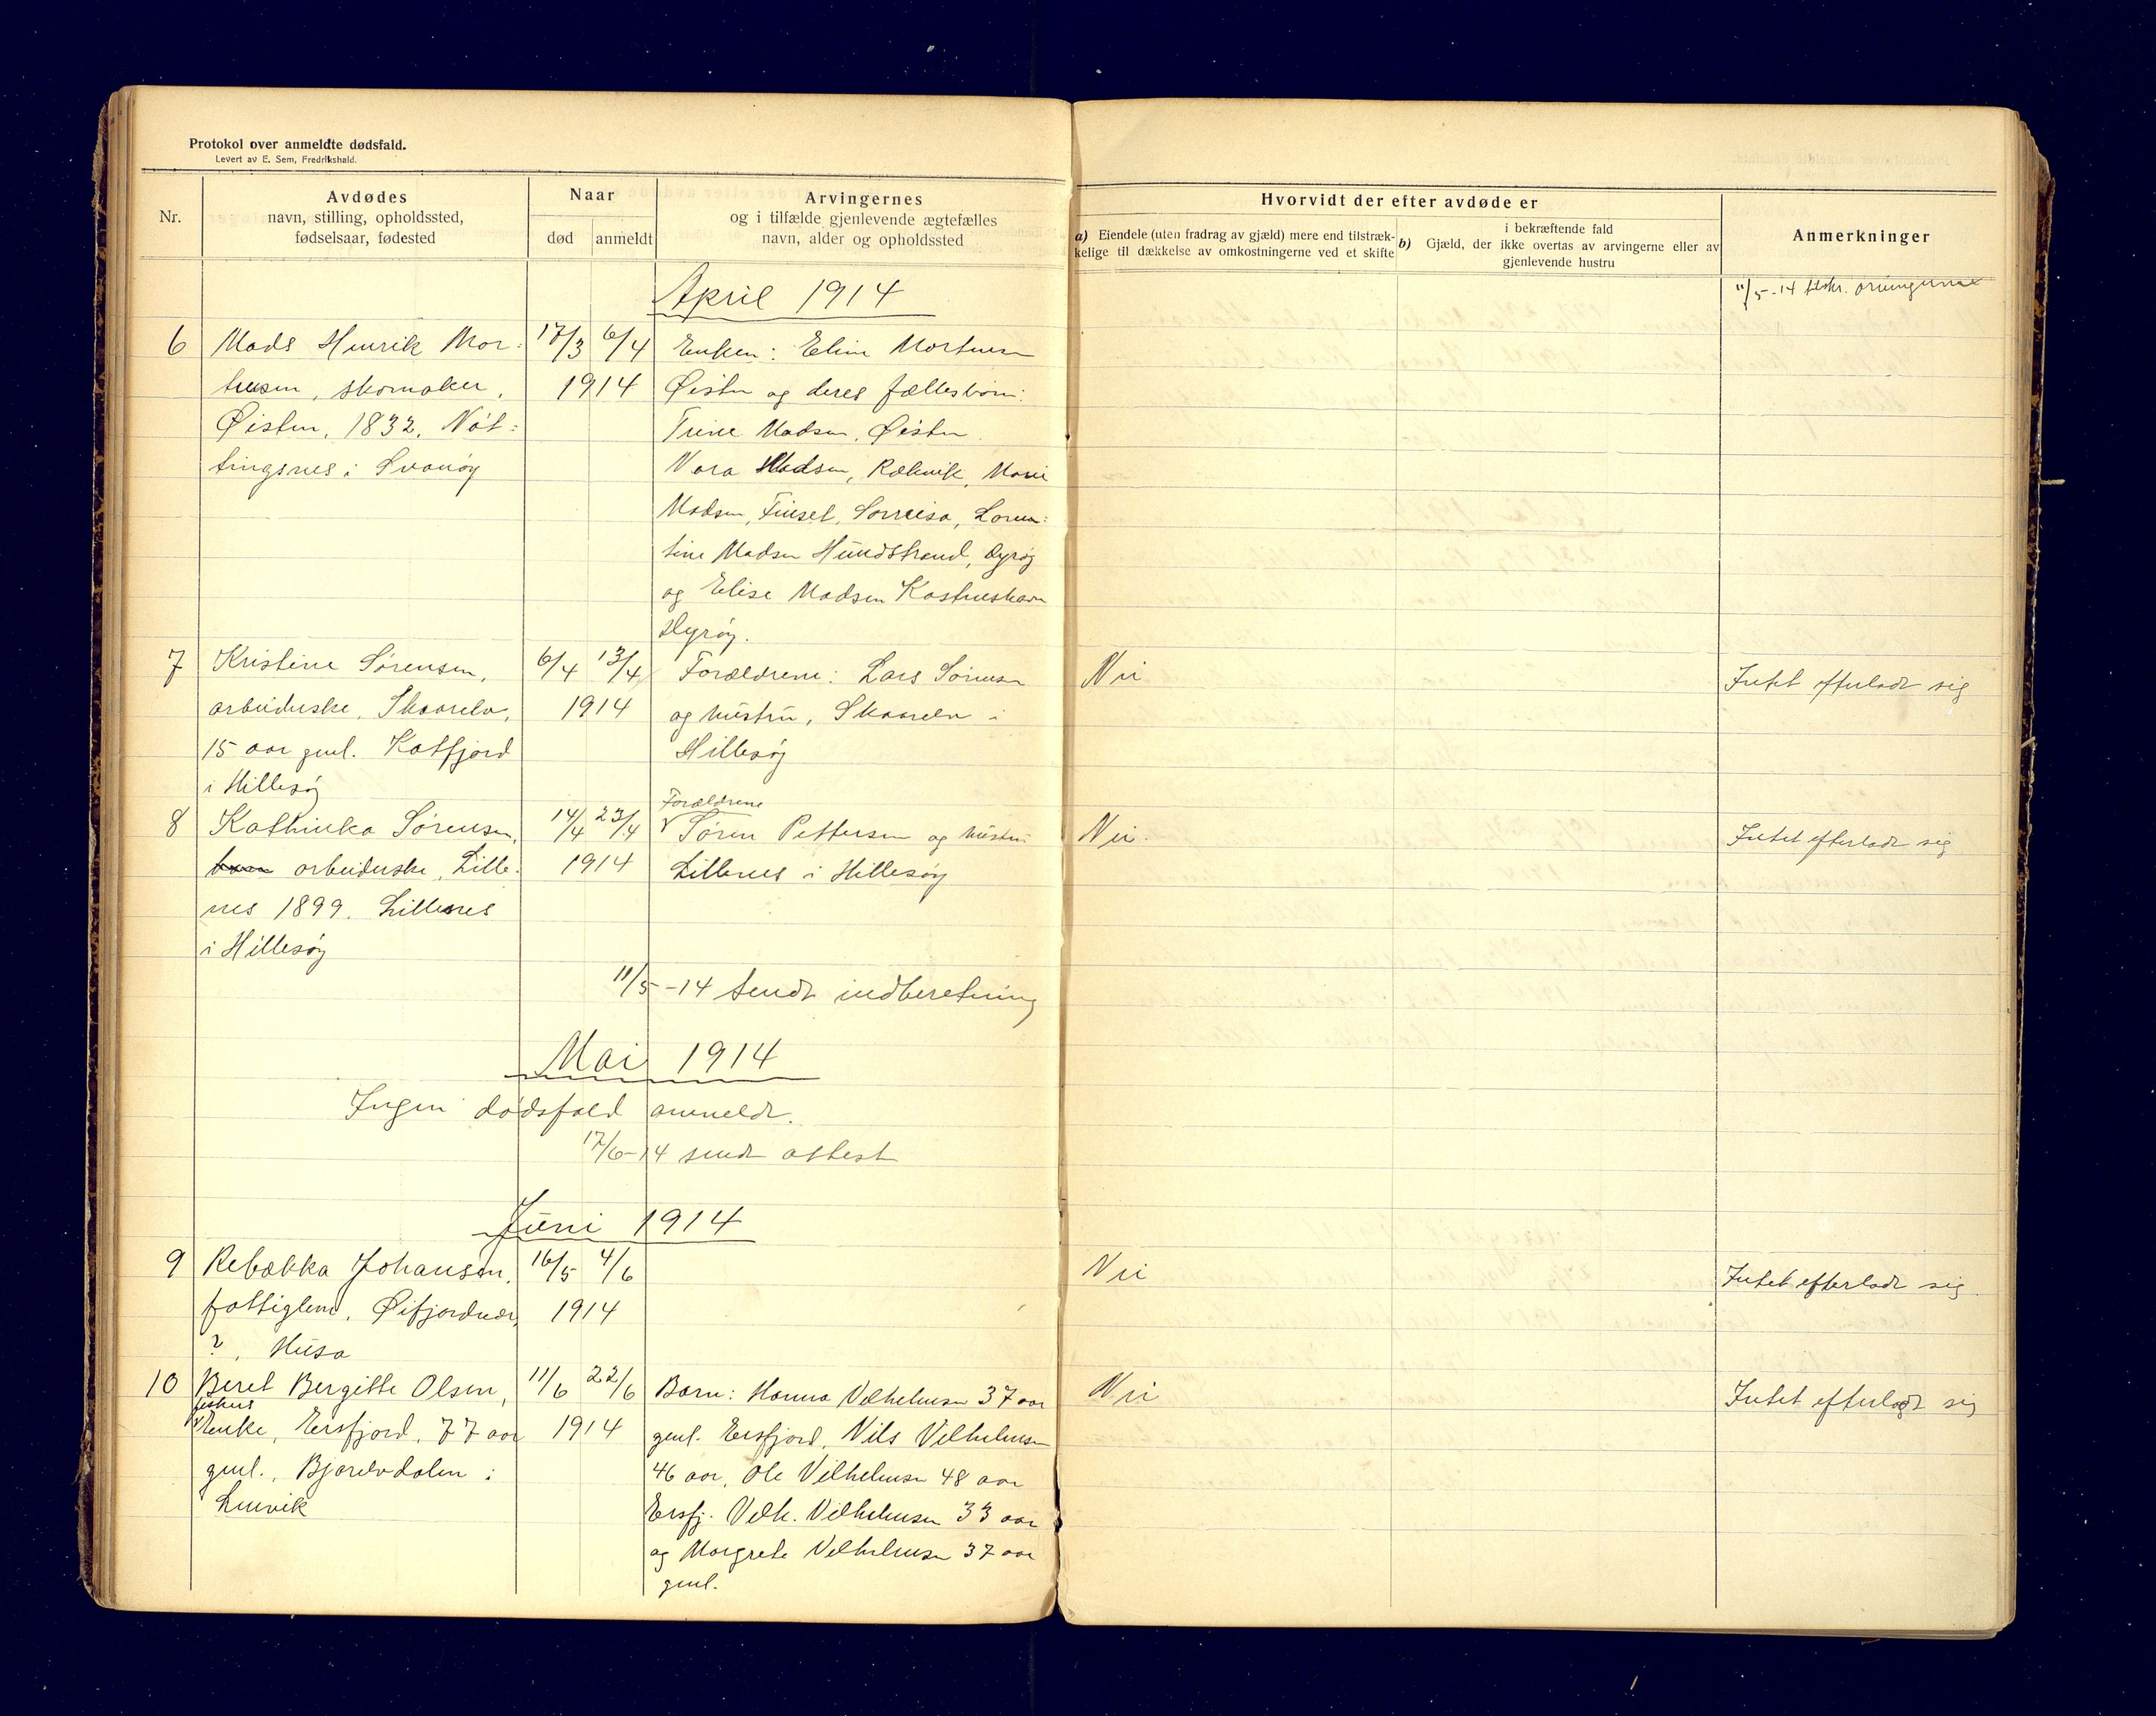 Protokol over anmeldte dødsfald.
Levert av E. Sem, Fredrikshald.
Nr.
Avdødes
navn, stilling, opholdssted,
fødselsaar, fødested
Naar
død
anmeldt
Arvingernes
og i tilfælde gjenlevende ægtefælles
navn, alder og opholdssted
Hvorvidt der efter avdøde er
a) Eiendele (uten fradrag av gjæld) mere end tilstræk-
kelige til dækkelse av omkostningerne ved et skifte
i bekræftende fald
b) Gjæld, der ikke overtas av arvingerne eller av
gjenlevende hustru
Anmerkninger
April 1914
11/5-14 tilskr. arvingerne
6
Mads Henrik Mor-
tensen, skomaker,
Østen, 1832, Nöt-
tingsnes i Svanøy
17/3 6/4
1914
Enken: Eline Mortensen
Øisten og deres fællesbörn:
Trine Madsen, Øisten
Vara Madsen, Rækvik, Marie
Madsen, Finset, Sørreisa, Loren-
tine Madsen Hundstrand, Dyröy
og Elise Madsen Kastneshavn
Dyröy.
7
Kristine Sørensen,
arbeiderske, Skaarelv,
15 aar gml. Katfjord
i Hillesöy
6/4 13/4
1914
Forældrene: Lars Sörensen
og hustru, Skaarelv i
Hillesöy
Nei
Intet efterladt sig
8
Kathinka Sørensen,
arbeiderske, Lille-
nes 1899. Lillenes
i Hillesöy
14/4 23/4
1914
Forældrene
Sören Pettersen og hustru
Lillenes i Hillesöy
Nei.
Intet efterladt sig
11/5-14 Sendt indberetning
Mai 1914
Ingen dødsfald anmeldt.
17/6-14 sendt attest
Juni 1914
9
Rebækka Johansen,
fattiglem, Øifjordvær,
?, Husa
16/5 4/6
1914
Nei
Intet efterladt sig
10
Beret Bergitte Olsen,
Enke, Ersfjord, 77 aar
gml., Bjørelvdalen i
Lenvik
11/6 22/6
1914
Barn: Hanna Vilhelmsen 37 aar
gml. Ersfjord, Nils Vilhelmsen
46 aar, Ole Vilhelmsen 48 aar
Ersfj. Vilh. Vilhelmsen 33 aar
og Margrete Vilhelmsen 37 aar
gml.
Nei
Intet efterladt sig